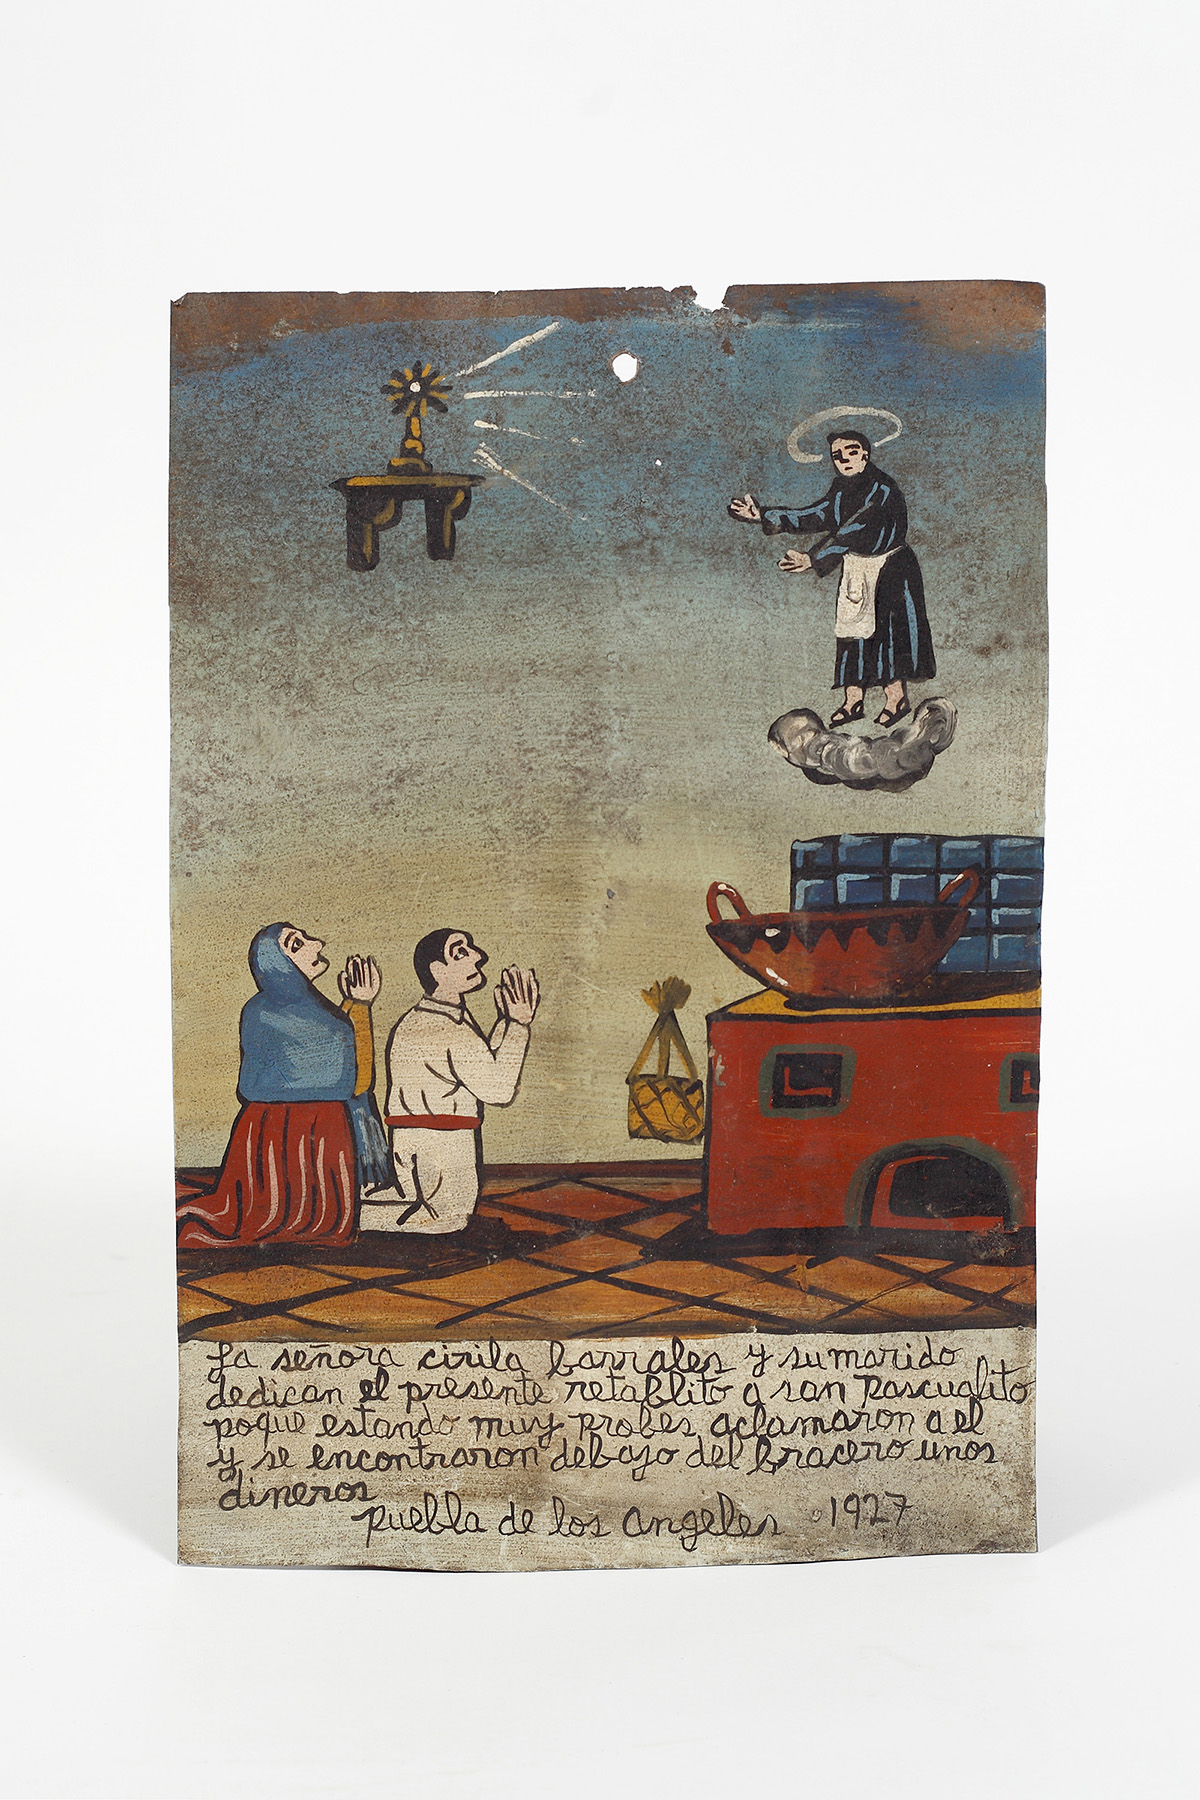 La señora cirila barrales y su marido
dedican el presente retablito a san pascualito
poque estando muy probes aclamaron a el
y se encontraron debajo del bracero unos
dineros
puebla de los angeles 1927